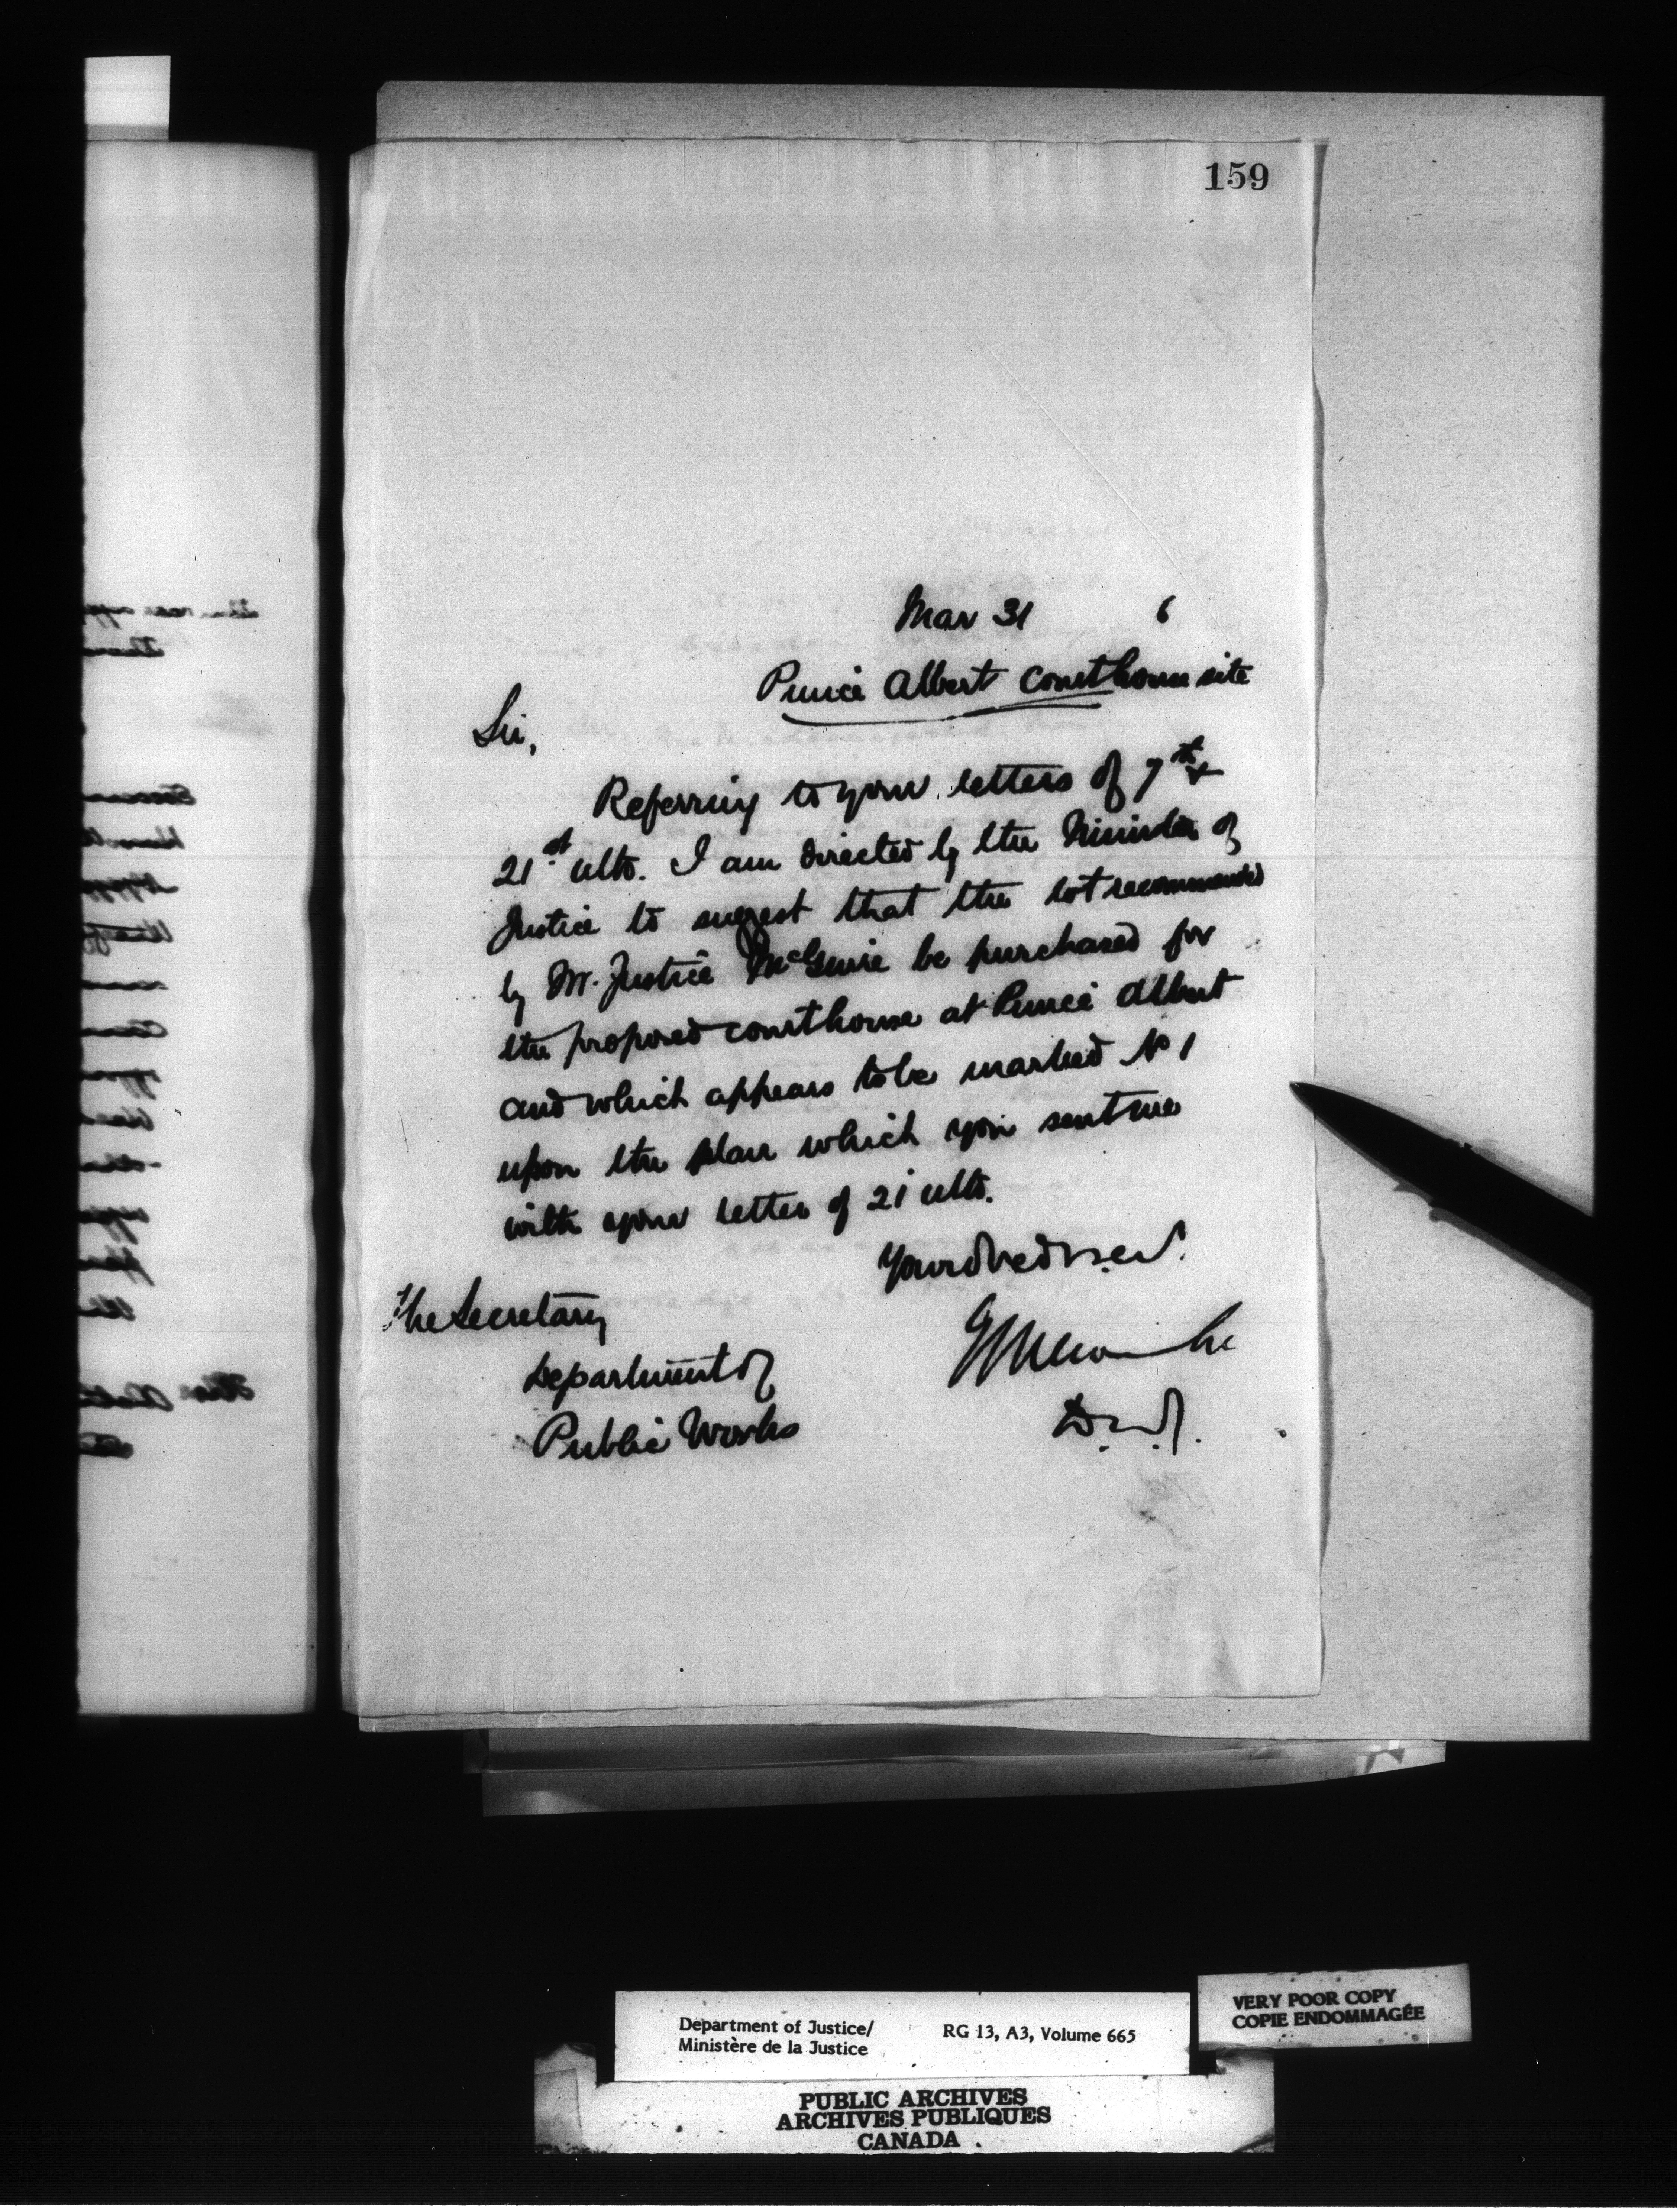 159
Mar 31 6
Prince Albert Courthouse site
Sir,
Referring to your letters of 7th &
21st ulto. I am directed by the Minister of
Justice to suggest that the lot recommended
by Mr. Justice McGuire be purchased for
the proposed courthouse at Prince Albert
and which appears to be marked No 1
upon the plan which you sent me
with your letter of 21 ulto.
The Secretary
Department of
Public Works
Department of Justice/
Ministère de la Justice
RG 13, A3, Volume 665
VERY POOR COPY
COPIE ENDOMMAGÉE
PUBLIC ARCHIVES
ARCHIVES PUBLIQUES
CANADA